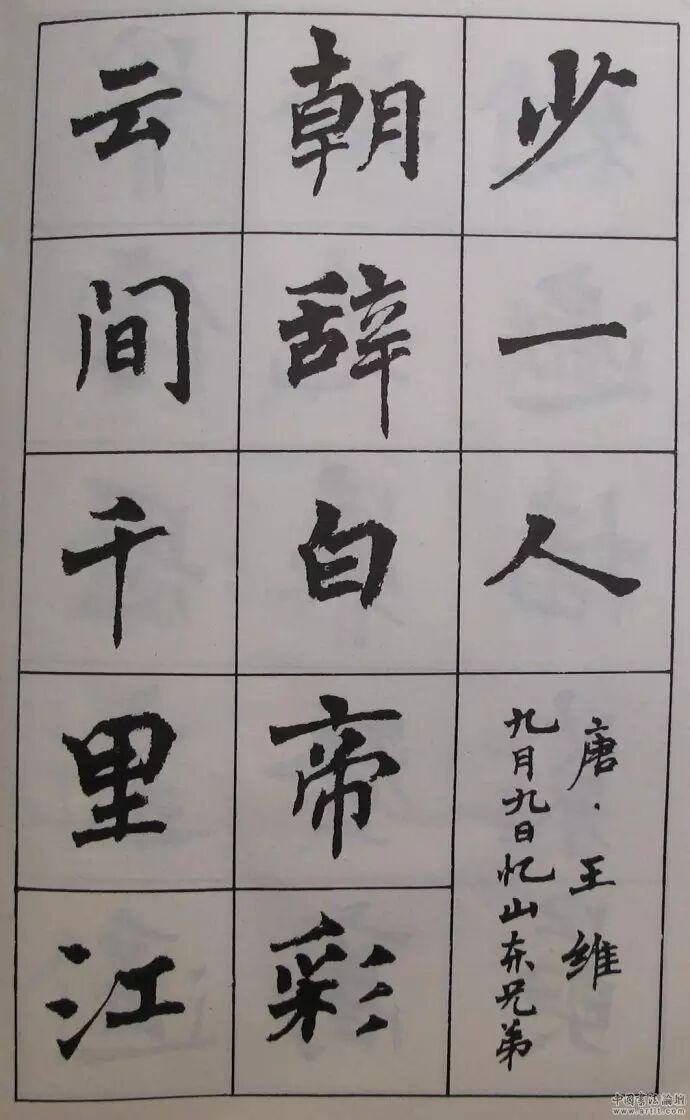 少一人
唐·王维
九月九日忆山东兄弟
朝辞白帝彩
云间千里江
中国书法论坛
www.artit.com